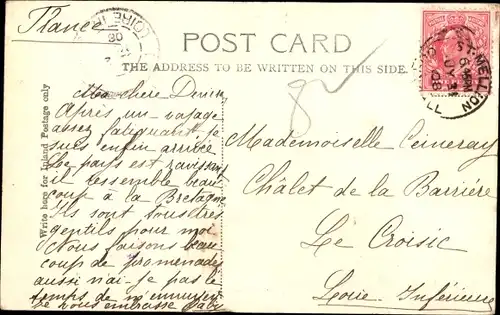 France
LOIRE IN
08
POST CARD
THE ADDRESS TO BE WRITTEN ON THIS SIDE.
ST MELLION
6 AM
JY 31
08
Write here for Inland Postage only
Ma chère
Après un voyage
assez fatiguant je
suis enfin arrivée
Le pays est ravissant
il ressemble beau
coup à la Bretagne
Ils sont tous très
gentils pour moi
Nous faisons beau
coup de promenades
aussi n'ai-je pas le
temps de m'ennuyer
Je vous embrasse
Mademoiselle
Châlet de la Barrière
Le Croisic
Loire Inférieure